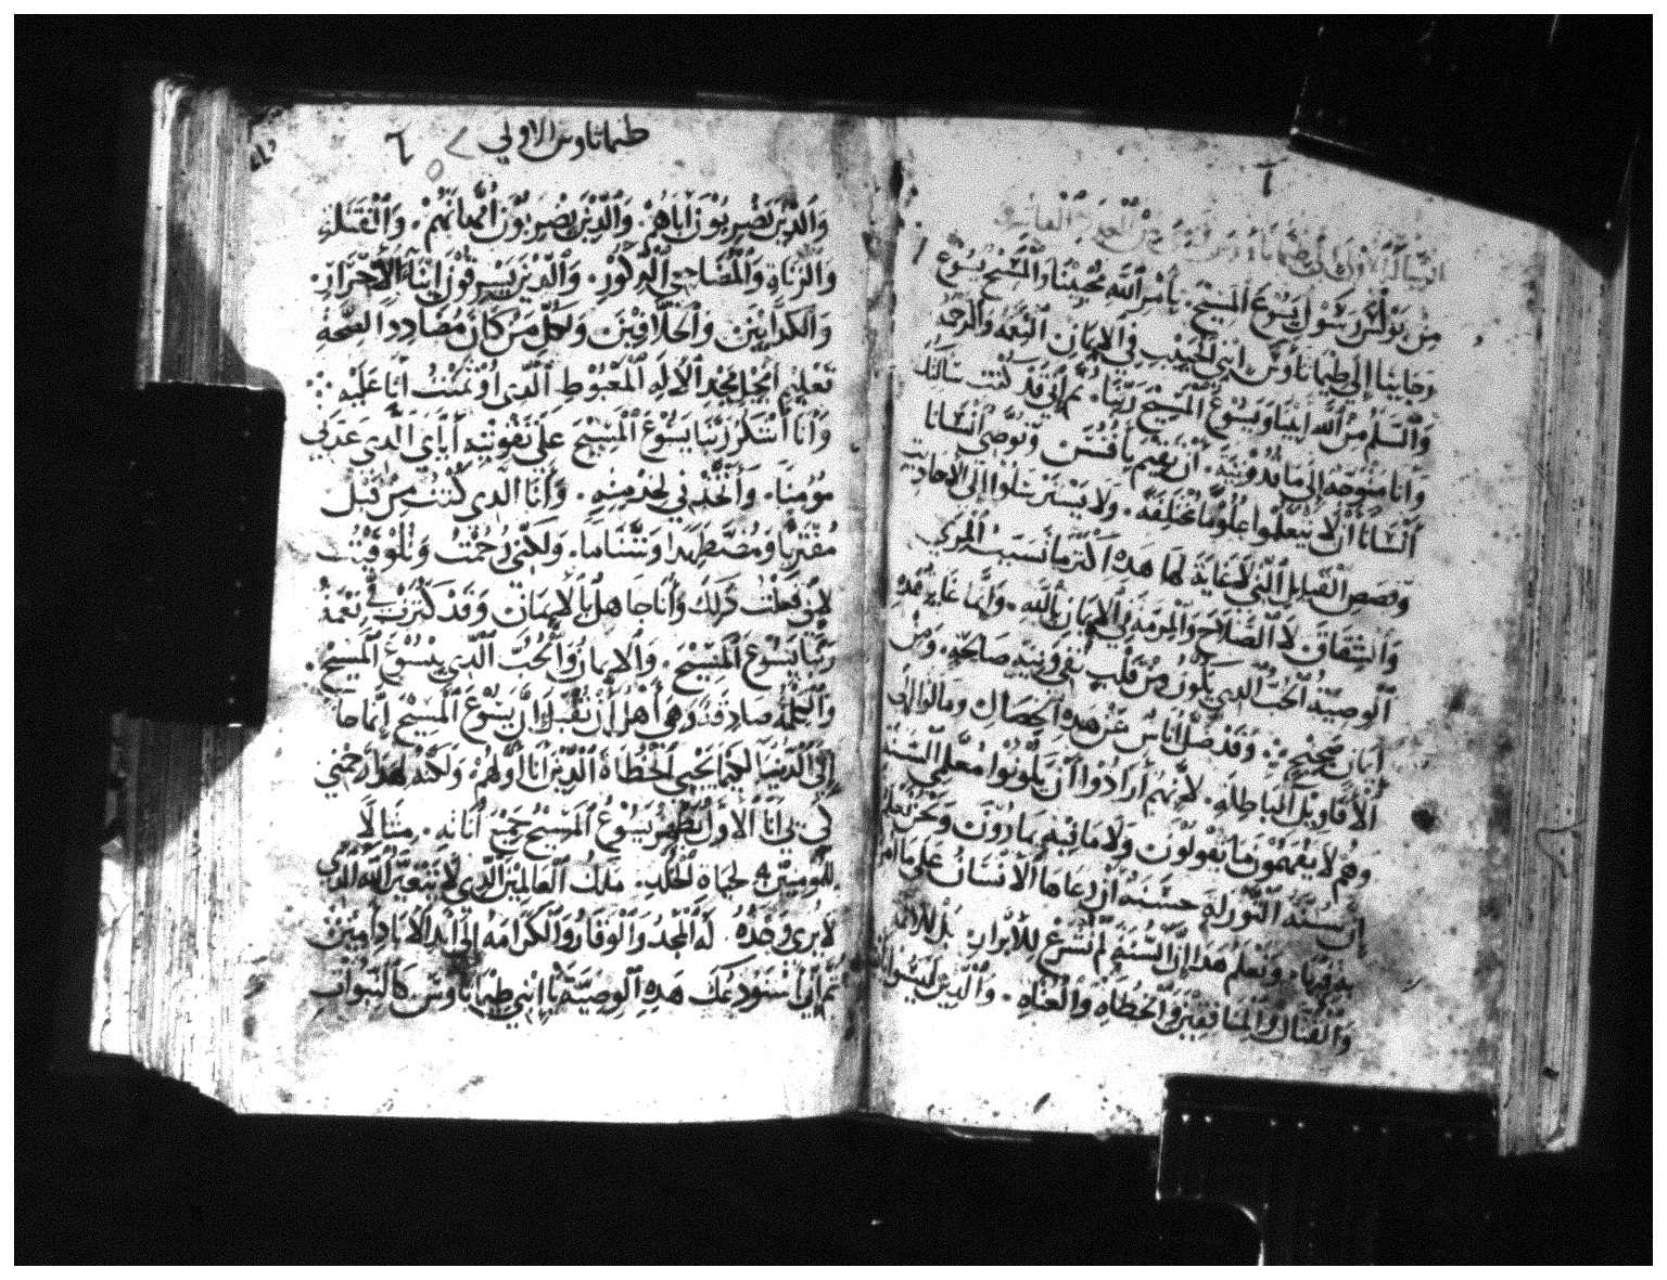 الرسالة الأولى إلى طيماثاوس
من بَوْلُسَ رَسُولِ يَسُوعَ المَسِيحِ. بأمْرِ اللَّه مُحْيِينَا وَالْمَسِيحِ يَسُوعَ
رجاينا إلى طيماثاوس ابني الحبيب في الإيمان النعمة والرحمة
وَالسَّلم مِنْ اللَّه أبينا وَيسُوعَ المَسِيحِ رَبِّنَا. ثم إني قد كنت سالتك
وأنا متوجه إلى ماقدونية. أن تقيم بأفسس وتوصى انسانا
انسانا أن لا يتعلموا علوما مختلفة. ولا يسترسلوا إلى الاحاديث
وقصص القبايل التي لا غاية لها هذه أكثر ما تسبب المرى
والشقاق لا الصلاح والمرمة في الإيمان بالله. وإنما غاية هذه
الوصية الحب الذي يكون من قلب نقي ونية صالحة. ومن
إيمان صحيح. وقد ضل أناس عن هذه الخصال ومالوا إلى
الأقاويل الباطلة. لأنهم أرادوا أن يكونوا معلمي السنة
وهم لا يفهمون ما يقولون ولا ما فيه يمارون ونحن نعلم
إن سنة التورية حسنة إن رعاها الانسان على ما أمر
به فيها. ونعلم هذا إن السنة لم تشرع للأبرار بل للاثمة
والقتال والمنافقين والخطاه والعتاه. والذين ليسوا
طيماثاوس الاولي
وَالَّذِينَ يَضْرِبُونَ أباهُمْ. وَالَّذِينَ يَضْرِبُونَ أُمَّهَاتِهِمْ. وَالْقَتَلَةِ
وَالزناةِ وَالمُضَاجعي الذُّكُورِ. وَالَّذِينَ يَسْرِقُونَ ابْنَآءَ الأحْرَارِ.
وَالكذابين وَالحَلَّافِينَ وَلكُلّ مَنْ كَانَ مُضَادِدا لصحة
تعليم إنجيل مجد الاله المغبوط الذي اؤتمنت أنا عليه
وأنا أشكر ربنا يسوع المسيح على تقويته أياى الذى عدني
مؤمنا. وأتخذني لخدمته. وأنا الذي كنت من قبل
مُفتريا ومضطهدا وشتاما. ولكني رحمت
لأني فعلت ذلك وأنا جاهل بالإيمان وقد كثرت في نعمة
ربنا يسوع المسيح. والايمان والحب الذي بيسوع المسيح.
والكلمة صادقة وهي أهل أن تقبل ان يسوع المسيح إنما جا
إلى الدنيا لكيما يحيي الخطاة الذين أنا أولهم. ولكنه لهذا رحمني
كي بي أنا الأول يظهر يسوع المسيح جميع أناته. مثالا
للمؤمنين به لحياة الخلد. ملك العالمين الذي لا يتغير الله الذي
لا يرى وحده. له المجد والوقار والكرامة إلى أبد الأباد أمين
ثم إني أستودعك هذه الوصية يا ابني طيماثاوس كالنبوات